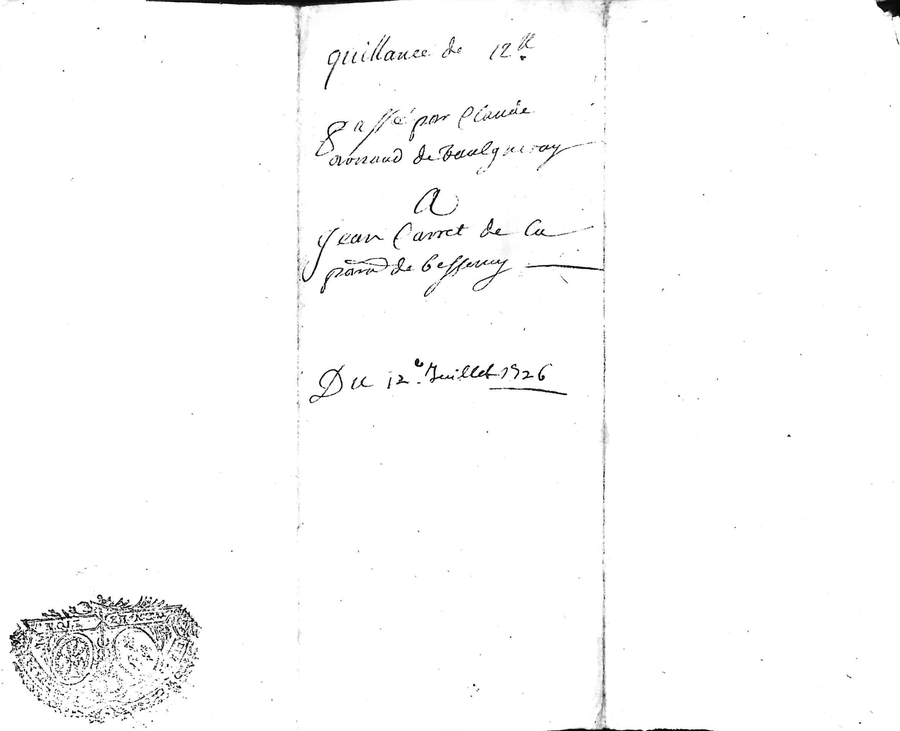 quittance de 12 tt
Passé par Claude
de Vaulgneray
A
Jean Carret de la
de bessenay
Du 12e Juillet 1726